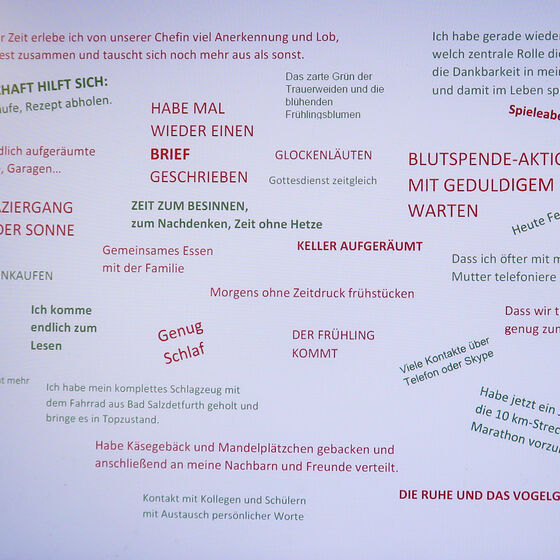 r Zeit erlebe ich von unserer Chefin viel Anerkennung und Lob,
est zusammen und tauscht sich noch mehr aus als sonst.
Ich habe gerade wieder
welch zentrale Rolle die
die Dankbarkeit in mein
und damit im Leben sp
CHAFT HILFT SICH:
ufe, Rezept abholen.
HABE MAL
WIEDER EINEN
BRIEF
GESCHRIEBEN
Das zarte Grün der
Trauerweiden und die
blühenden
Frühlingsblumen
Spieleabe
dlich aufgeräumte
, Garagen...
GLOCKENLÄUTEN
Gottesdienst zeitgleich
BLUTSPENDE-AKTIO
MIT GEDULDIGEM
WARTEN
AZIERGANG
DER SONNE
ZEIT ZUM BESINNEN,
zum Nachdenken, Zeit ohne Hetze
Heute Fe
Gemeinsames Essen
mit der Familie
KELLER AUFGERÄUMT
Dass ich öfter mit m
Mutter telefoniere
NKAUFEN
Morgens ohne Zeitdruck frühstücken
Ich komme
endlich zum
Lesen
Genug
Schlaf
DER FRÜHLING
KOMMT
Dass wir t
genug zun
Viele Kontakte über
Telefon oder Skype
ut mehr
Ich habe mein komplettes Schlagzeug mit
dem Fahrrad aus Bad Salzdetfurth geholt und
bringe es in Topzustand.
Habe jetzt ein
die 10 km-Strec
Marathon vorzu
Habe Käsegebäck und Mandelplätzchen gebacken und
anschließend an meine Nachbarn und Freunde verteilt.
Kontakt mit Kollegen und Schülern
mit Austausch persönlicher Worte
DIE RUHE UND DAS VOGELG